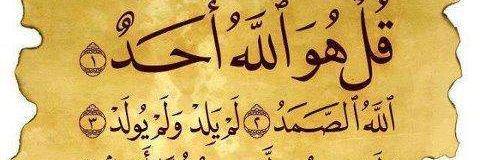 قُلْ هُوَ ٱللَّهُ أَحَدٌ ١
ٱللَّهُ ٱلصَّمَدُ ٢ لَمْ يَلِدْ وَلَمْ يُولَدْ ٣